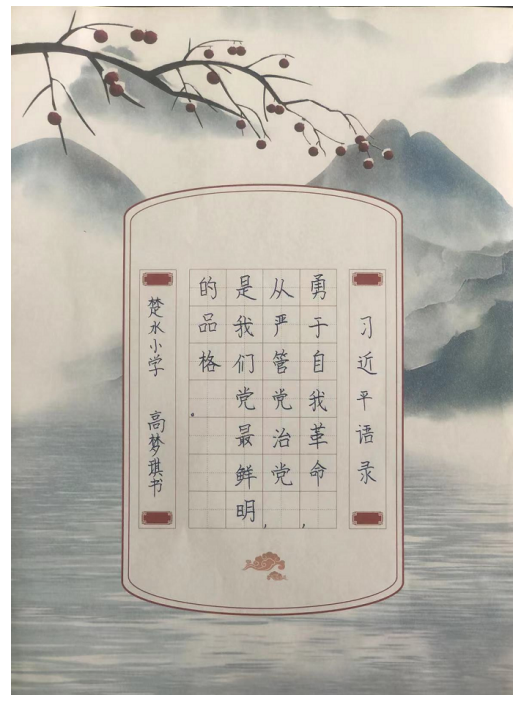 习近平语录
勇于自我革命，
从严管党治党，
是我们党最鲜明
的品格。
楚水小学 高梦琪书